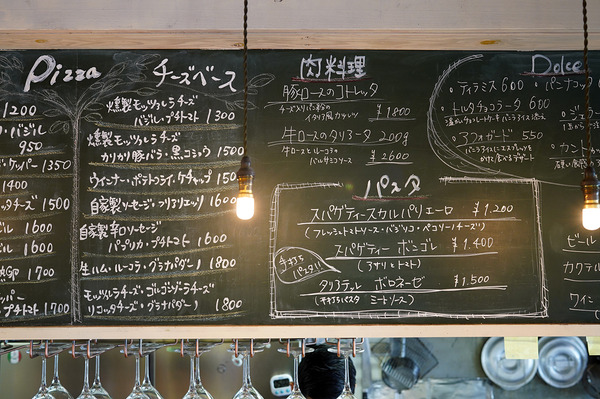 Pizza
1200
・バジル
950
・ケッパー 1350
1400
タチーズ 1500
ビル 1600
ビル 1600
1700
ッパー
プチトマト 1700
チーズベース
燻製モッツァレラチーズ
バジル・プチトマト 1300
燻製モッツァレラチーズ
カリカリ豚バラ・黒コショウ 1500
ウインナー・ポテトフライ・ケチャップ 1500
自家製ソーセージ・フリアリエッリ 1600
自家製辛口ソーセージ
パプリカ・プチトマト 1600
生ハム・ルーコラ・グラナパダーノ 1800
モッツァレラチーズ・ゴルゴンゾーラチーズ
リコッタチーズ・グラナパダーノ 1800
肉料理
豚ロースのコトレッタ
チーズ入りパン粉の
イタリア風カツレツ ¥1800
牛ロースのタリアータ 200g
牛ロースとルーコラの
バルサミコソース ¥2600
パスタ
スパゲティースカルパリエーロ ¥1.200
(フレッシュトマトソース・バジリコ・ペコリーノチーズ)
スパゲティー ボンゴレ ¥1.400
(アサリとトマト)
手打ち
パスタ!!
タリアテッレ ボロネーゼ ¥1.500
(手打ちパスタ ミートソース)
Dolce
・ティラミス 600
・パンナコッ
・トルタチョコラータ 600
・アフォガード 550
バニラアイスにエスプレッソを
かけた食べるデザート
ビール
カクテル
ワイン